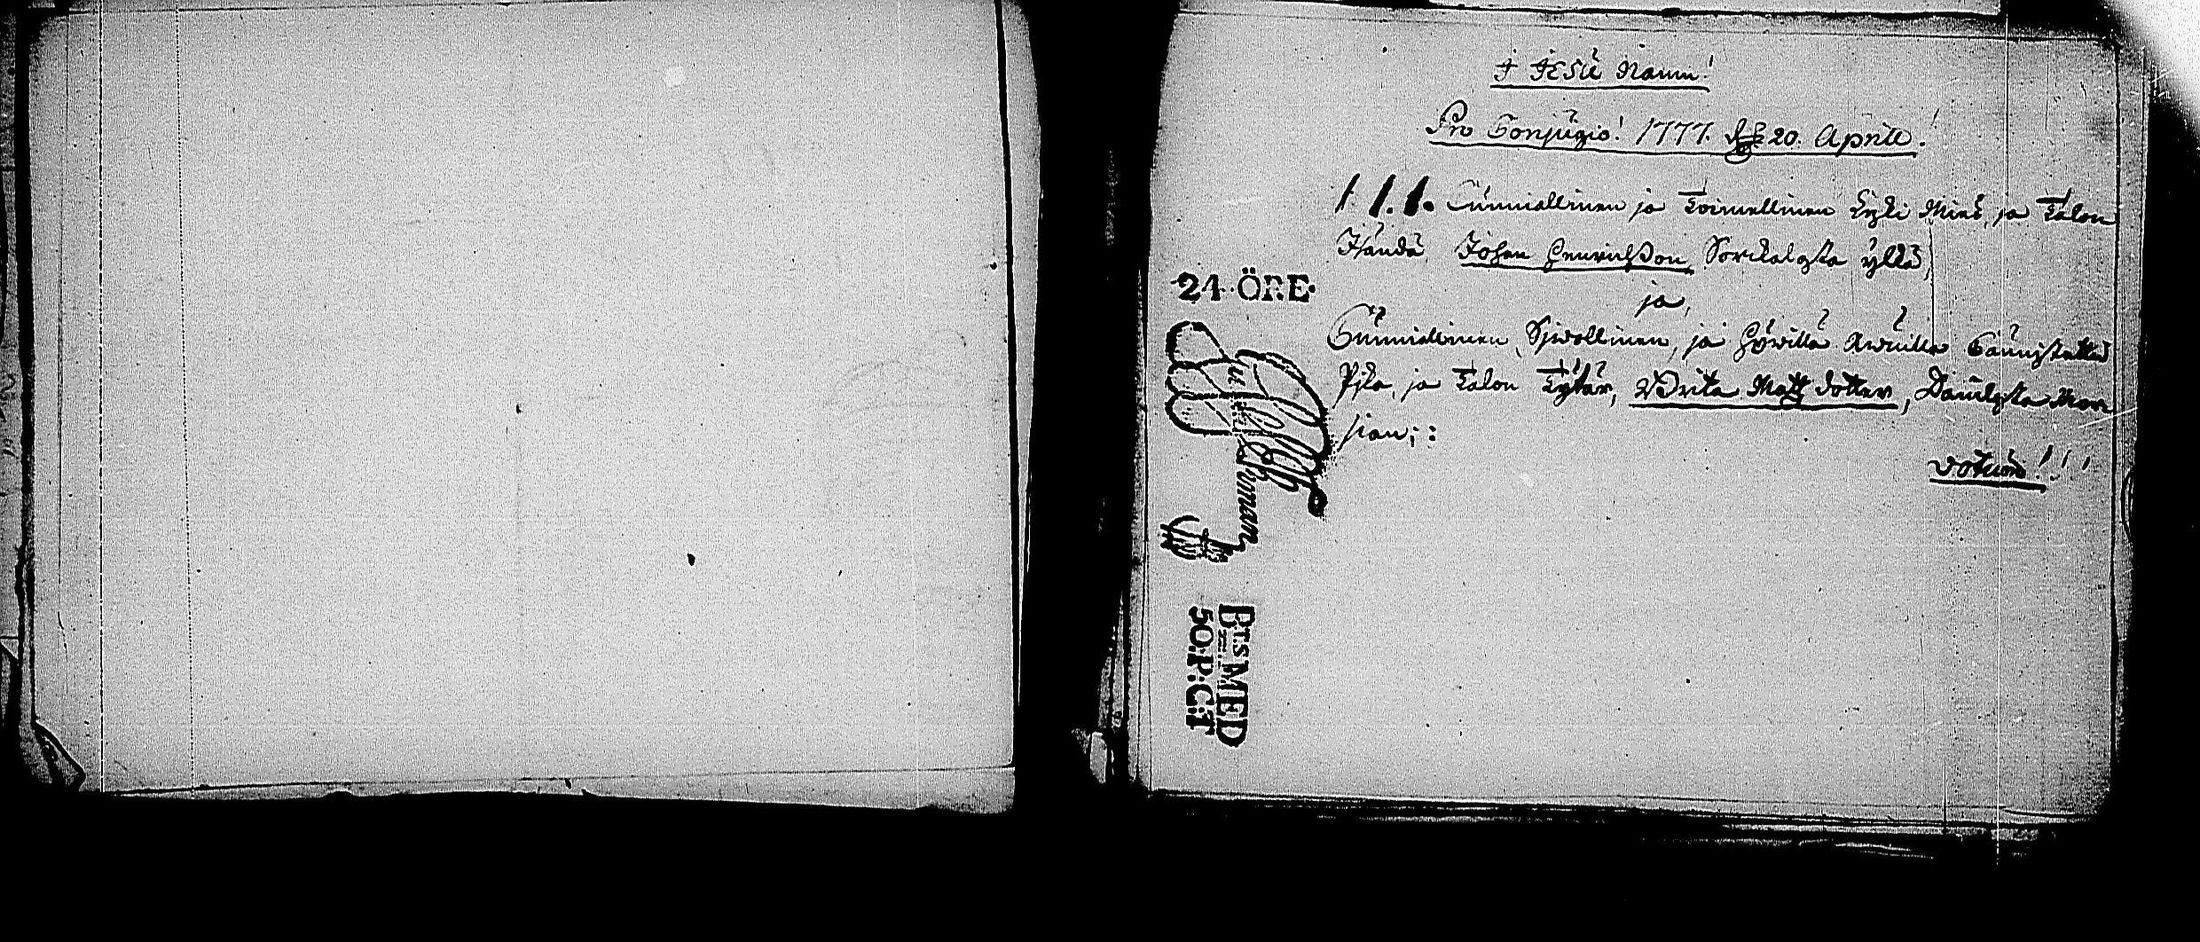 I JESU Namn!
Pro Conjugio! 1777. d. 20. Aprill.
1. 1. 1. Cunniallinen ja Toimellinen Yxi Mies, ja Talon
Isändä Johan Henrichsson Sorkalasta yllä,
ja,
Cunniallinen, Sjwollinen, ja Hywillä Awuilla Caunistettu
Pjka, ja Talon Tytär, Brita Matts dotter, Daulasta Mar
sian;:
votum!!!
24 ÖRE
Ekman
BTS MED
50 P:C:T